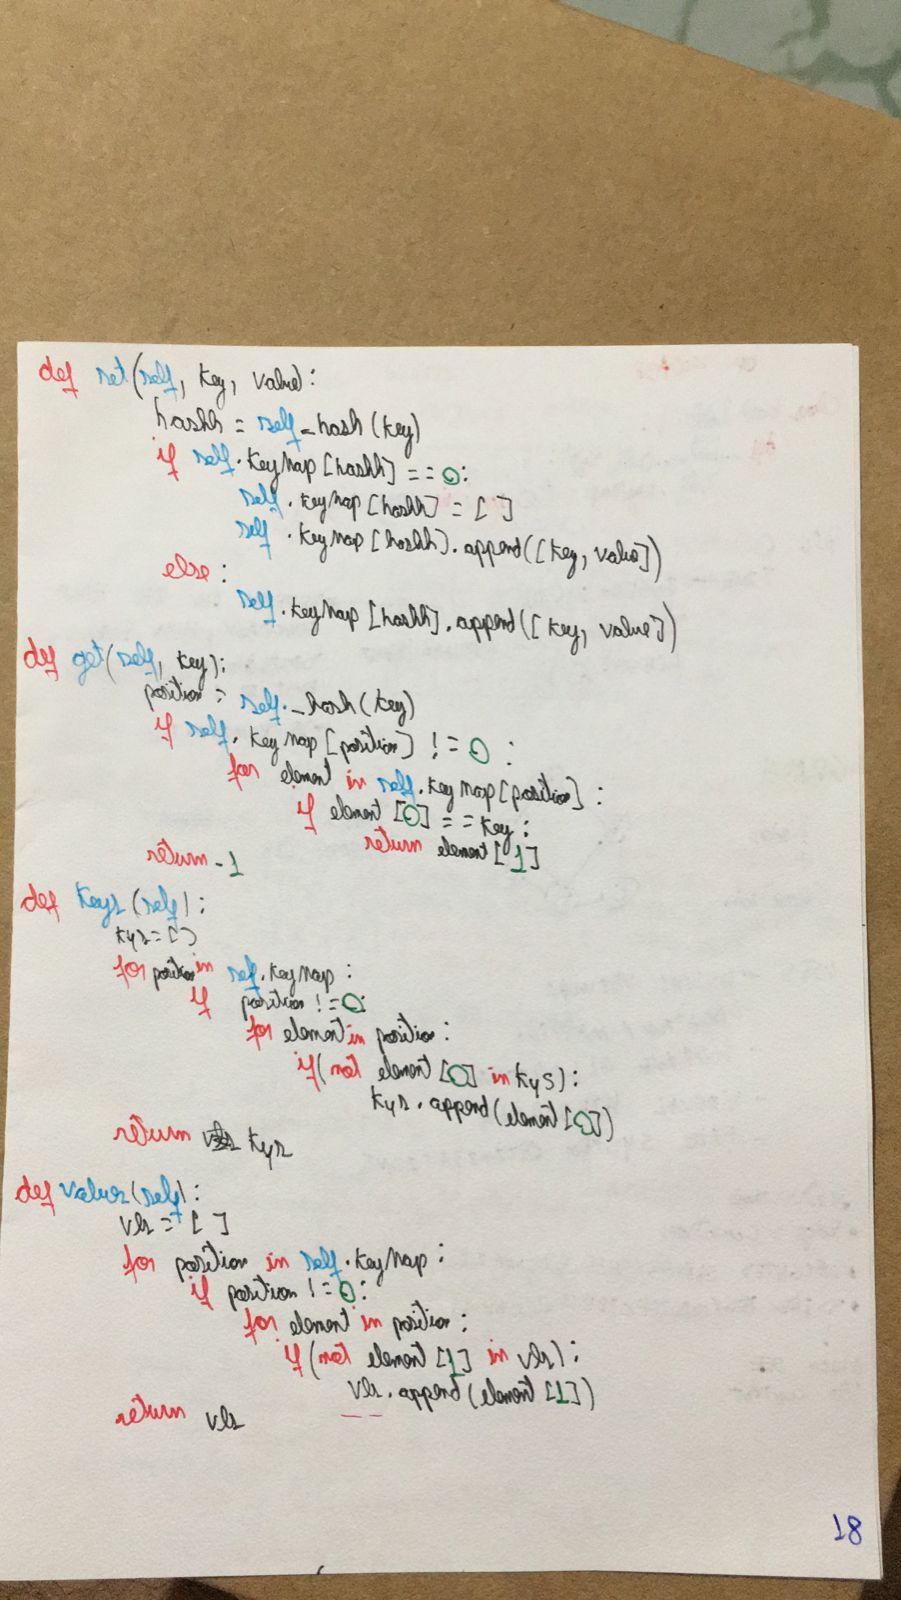 def set(self, key, value):
hashh = self_hash(key)
if self.keyMap[hashh] == 0:
self.keyMap[hashh] = []
self.keyMap[hashh].append([key, value])
else:
self.keyMap[hashh].append([key, value])
def get(self, key):
position = self._hash(key)
if self.keyMap[position] != 0:
for element in self.keyMap[position]:
if element[0] == key:
return element[1]
return -1
def keys(self):
kys=[]
for position in self.keyMap:
if position != 0:
for element in position:
if(not element[0] in kys):
kys.append(element[0])
return kys
def values(self):
vls = []
for position in self.keyMap:
if position != 0:
for element in position:
if(not element[1] in vls):
vls.append(element[1])
return vls
18